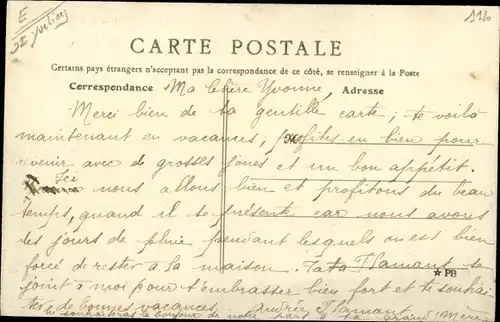 E
SI Yvelines
1110
CARTE POSTALE
Certains pays étrangers n'acceptant pas la correspondance de ce côté, se renseigner à la Poste
Correspondance Ma Chère Yvonne, Adresse
Merci bien de ta gentille carte ; te voilà
maintenant en vacances, profites en bien pour
revenir avec de grosses joues et un bon appétit.
Ici nous allons bien et profitons du beau
temps, quand il se présente car nous avons
des jours de pluie pendant lesquels on est bien
forcé de rester à la maison. Tata Flamant se
☆ PB
joint à moi pour t'embrasser bien fort et te souhai
ter de bonnes vacances. Andrée Flamant
tu souhaiteras le bonjour de notre part à ta Grand' Mère